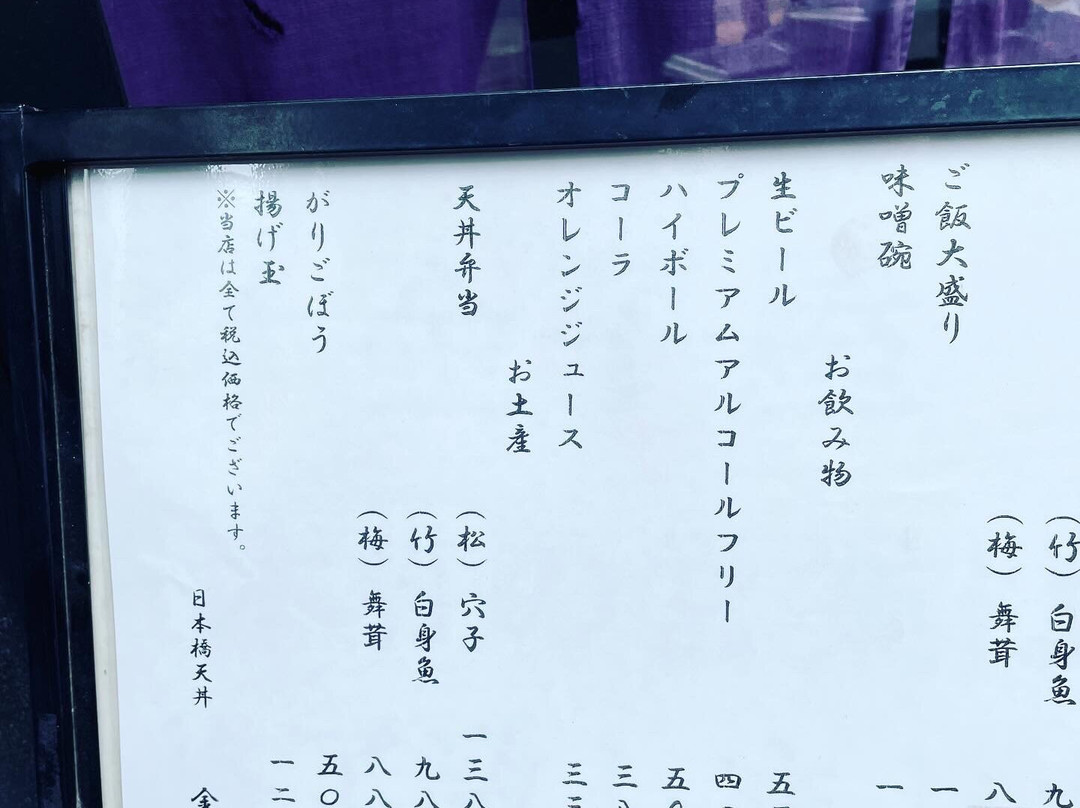 (竹) 白身魚 九
(梅) 舞茸 八
ご飯大盛り 一
味噌碗 一
お飲み物
生ビール 五
プレミアムアルコールフリー 四
ハイボール 五〇
コーラ 三八
オレンジジュース 三三
お土産
天丼弁当 (松) 穴子 一三八
(竹) 白身魚 九八
(梅) 舞茸 八八
がりごぼう 五〇
揚げ玉 一二
※当店は全て税込価格でございます。
日本橋天丼 金